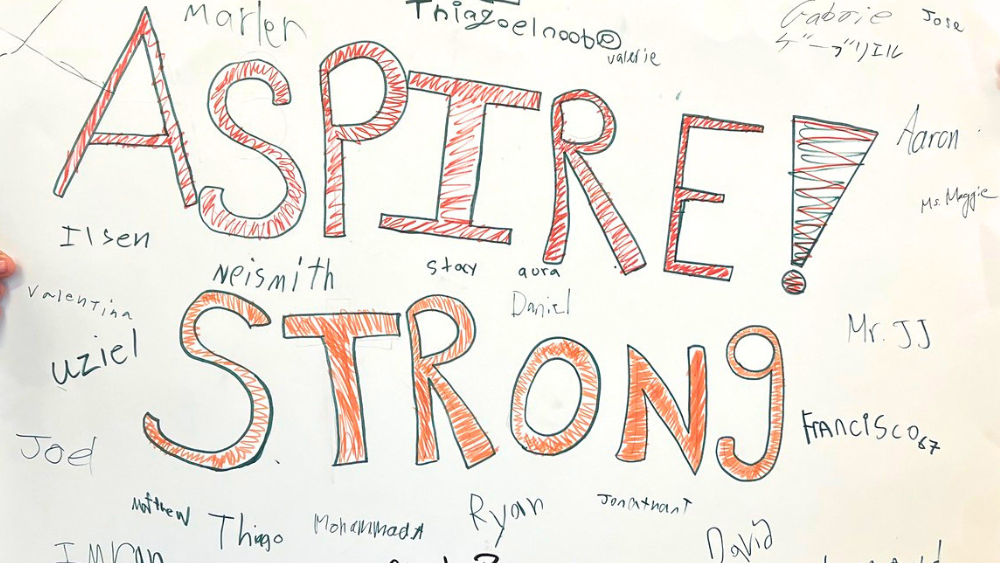 Marlen
Thiagoelnoob®
valerie
Gaborie
ゲーブリエル
Jose
ASPIRE!
Aaron
Ms. Maggie
Ilsen
Neismith
stacy
aura
Daniel
valentina
uziel
STRONg
Mr. JJ
Joel
Francisco67
Matthew
Thiago
Mohammad A
Ryan
Jonathan T
David
Imran